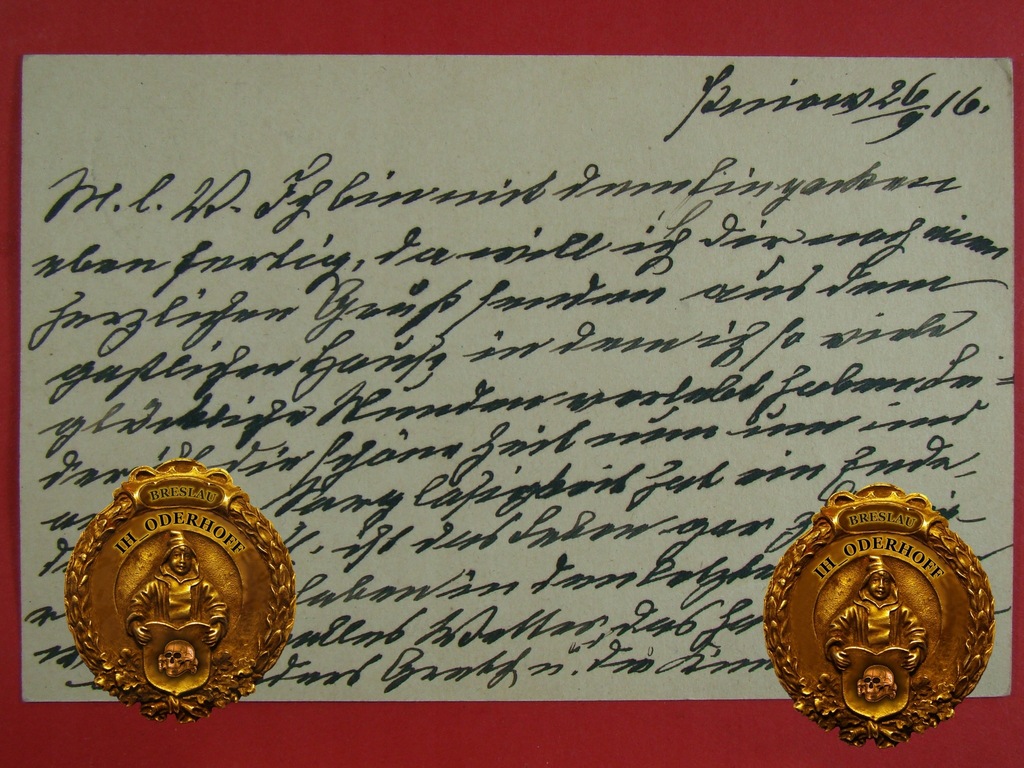 Pniow 26/9 16.
M. l. V. Ich bin mit dem Einpacken
eben fertig, da will ich dir noch einen
herzlichen Gruß senden aus dem
gastlichen Hause, in dem ich so viele
glückliche Stunden verlebt habe. Lei=
der ist die schöne Zeit nun um und
Sorglosigkeit hat ein Ende,
ist das Leben gar
haben in den letzten
alles Wetter, das
ders Gretch u. die
BRESLAU
IH_ODERHOFF
BRESLAU
IH_ODERHOFF